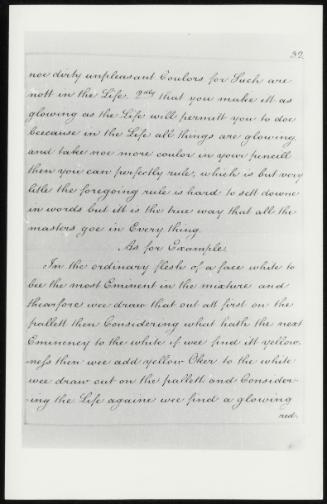 32
noe dirty unpleasant Coulors for Such are
nott in the Life. 2ndly that you make itt as
glowing as the Life will permitt you to doe
because in the Life all things are glowing
and take noe more coulor in your pencill
then you can perfectly rule, which is but very
litle the foregoing rule is hard to sett downe
in words but itt is the true way that all the
masters goe in Every thing.
As for Example.
In the ordinary flesh of a face white to
bee the most Eminent in the mixture and
thearfore wee draw that out att first on the
pallett then Considering what hath the next
Eminency to the white if wee find itt yellow
ness then wee add yellow Oker to the white
wee draw out on the palleth and Consider-
ing the Life againe wee find a glowing
red.